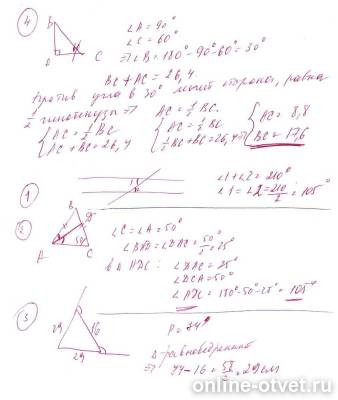 ④
B
A
C
∠A = 90°
∠C = 60°
⇒ ∠B = 180° - 90° - 60° = 30°
BC + AC = 26,4.
Против угла в 30° лежит сторона, равна
1/2 гипотенузы ⇒ AC = 1/2 BC.
{ AC = 1/2 BC
AC + BC = 26,4
{ AC = 1/2 BC
1/2 BC + BC = 26,4 ⇒
{ AC = 8,8
BC = 17,6
①
1
2
∠1 + ∠2 = 210°
∠1 = ∠2 = 210/2 = 105°
②
B
D
A
50
C
∠C = ∠A = 50°
∠BAD = ∠DAC = 50°/2 = 25°
в Δ ADC: ∠DAC = 25°
∠DCA = 50°
∠ADC = 180° - 50° - 25° = 105°
③
29
16
29
P = 74
Δ равнобедренный
⇒ 74 - 16 = 58/2 = 29 см
online-otvet.ru